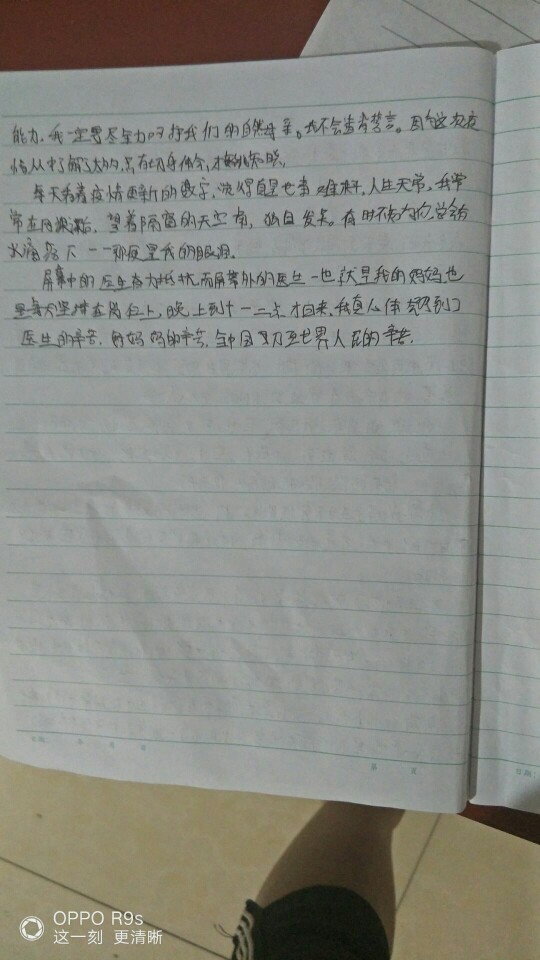 能力，我一定要尽全力呵护我们的自然母亲。我不会违背誓言。因为这次疫
情从中了解了太多，只有切身体会，才
每天看着疫情更新的数字，觉得真是世事难料，人生无常，我常
常在阳台，望着隔窗的天空有，独自发呆。有时不知为何，总会有
水滴落下——那便是我的眼泪。
屏幕中的医生在抵抗，而屏幕外的医生—也就是我的妈妈，也
是每天坚持在岗位上，晚上到十一二点才回来，我真心体会到了
医生的辛苦，妈妈的辛苦，全中国乃至世界人民的辛苦。
日期： 年 月 日
第 页
日期：
OPPO R9s
这一刻 更清晰